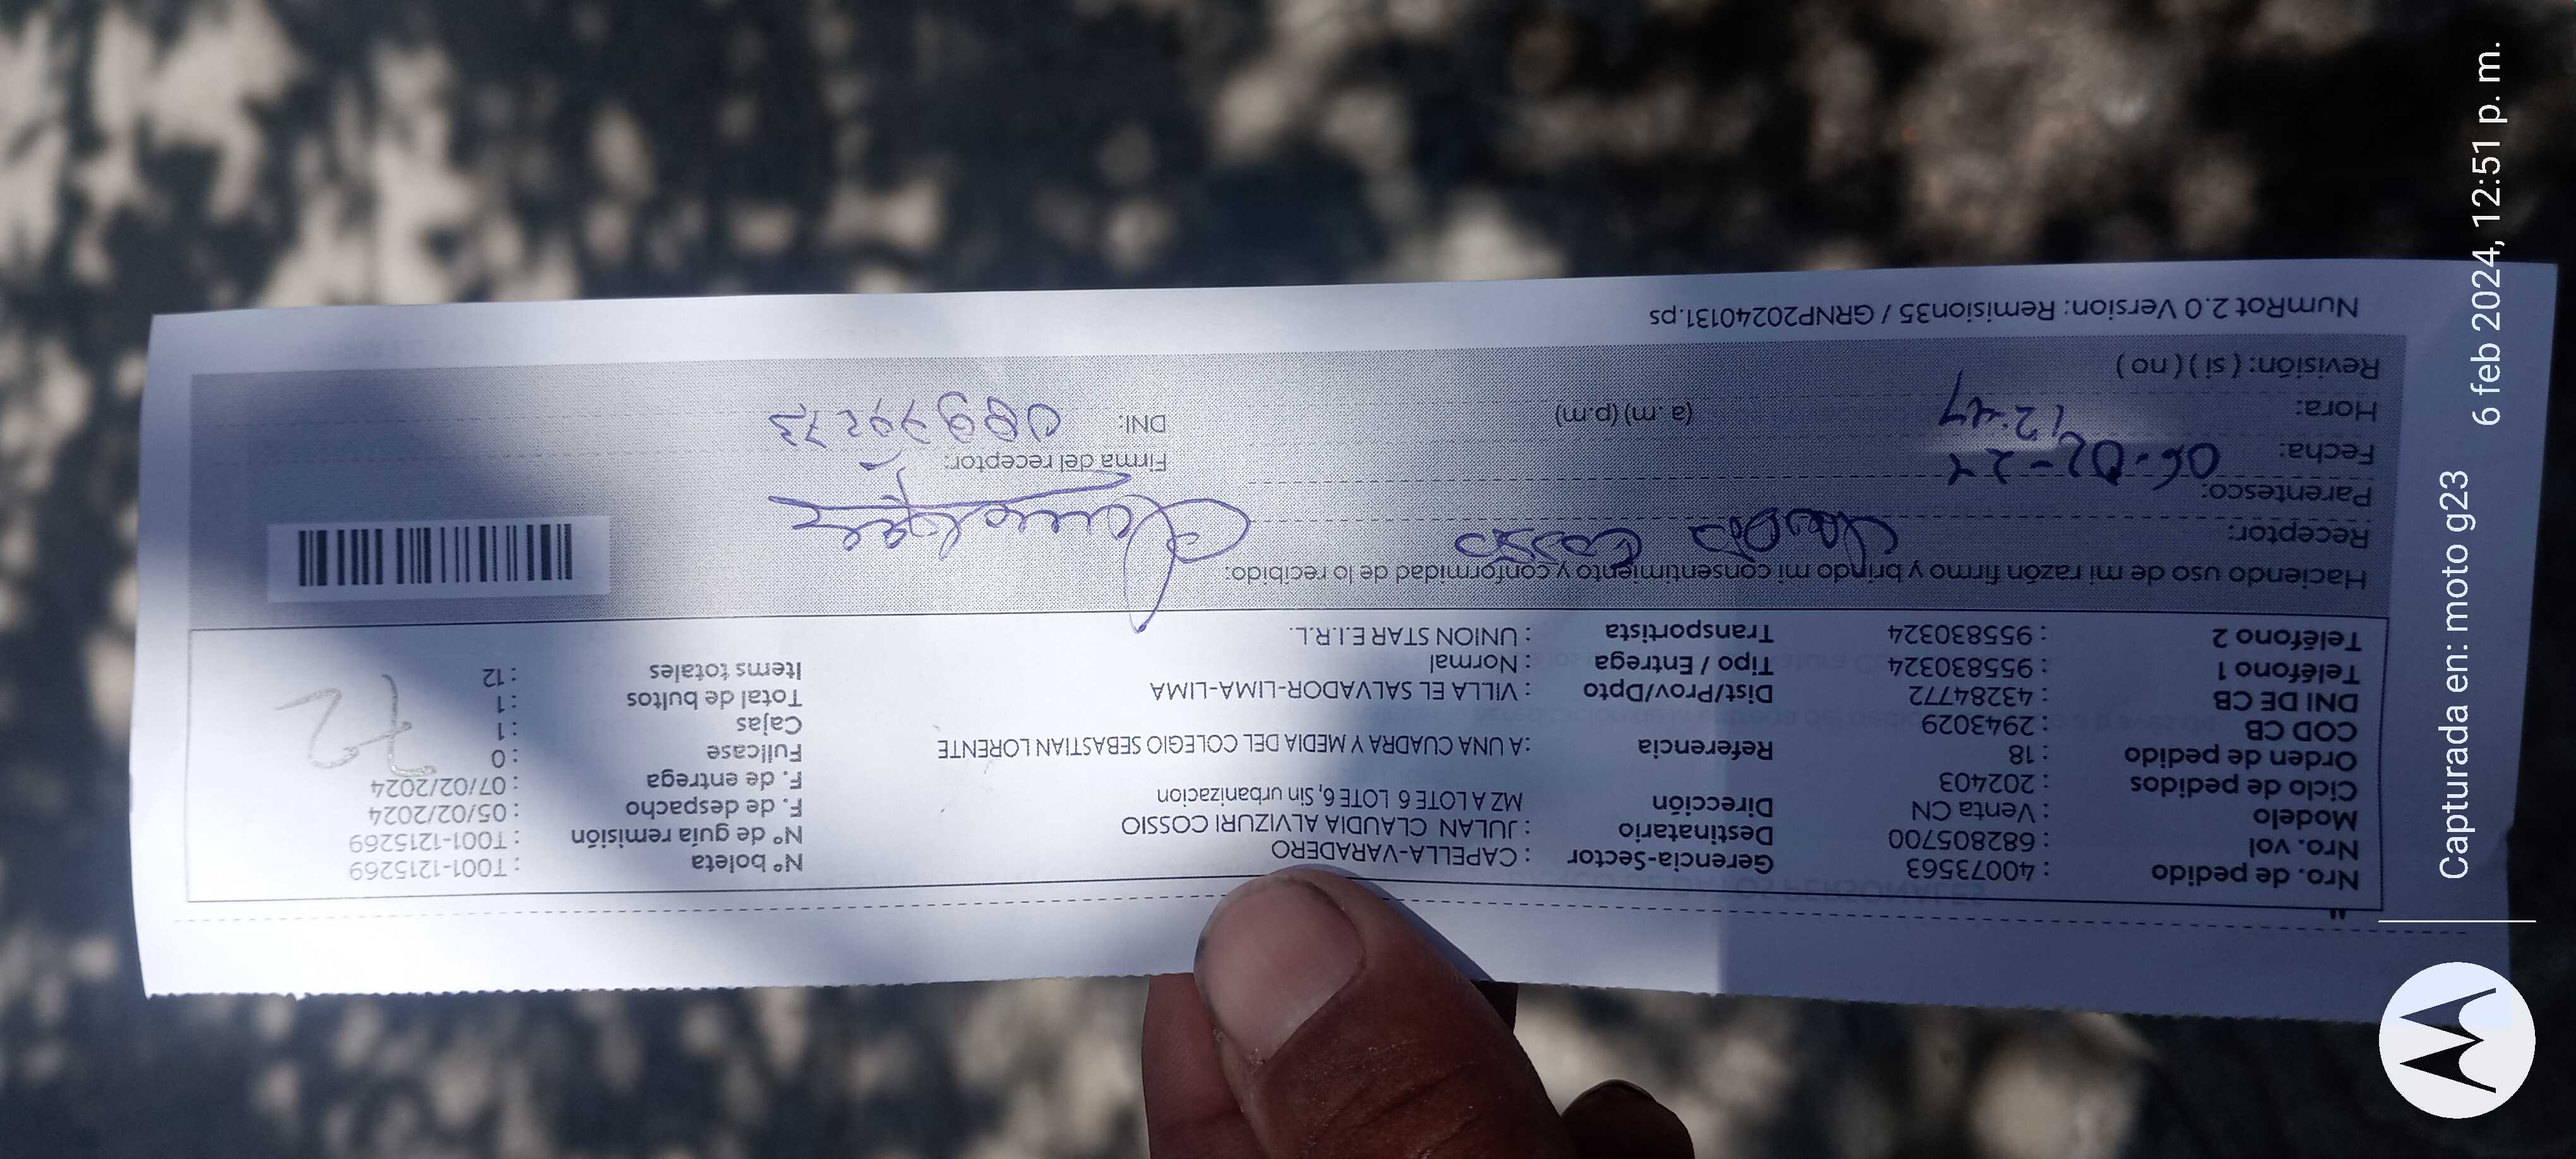 Nro. de pedido : 40073563 Gerencia-Sector : CAPELLA-VARADERO Nº boleta : T001-1215269
Nro. vol : 682805700 Destinatario : JULAN CLAUDIA ALVIZURI COSSIO Nº de guia remisión : T001-1215269
Modelo : Venta CN Dirección MZ A LOTE 6 LOTE 6, Sin urbanizacion F. de despacho : 05/02/2024
Ciclo de pedidos : 202403 F. de entrega : 07/02/2024
Orden de pedido : 18 Referencia : A UNA CUADRA Y MEDIA DEL COLEGIO SEBASTIAN LORENTE Fullcase : 0
COD CB : 2943029 Cajas : 1
DNI DE CB : 43284772 Dist/Prov/Dpto : VILLA EL SALVADOR-LIMA-LIMA Total de bultos : 1
Teléfono 1 : 955830324 Tipo / Entrega : Normal Items totales : 12
Teléfono 2 : 955830324 Transportista : UNION STAR E.I.R.L.
72
Haciendo uso de mi razón firmo y brindo mi consentimiento y conformidad de lo recibido:
Receptor: Claudia Cossio
Parentesco:
Fecha: 06-02-24 Firma del receptor:
Hora: 12:47 (a.m) (p.m) DNI:
Revisión: ( si ) ( no )
NumRot 2.0 Version: Remision35 / GRNP20240131.ps
Capturada en: moto g23 6 feb 2024, 12:51 p. m.